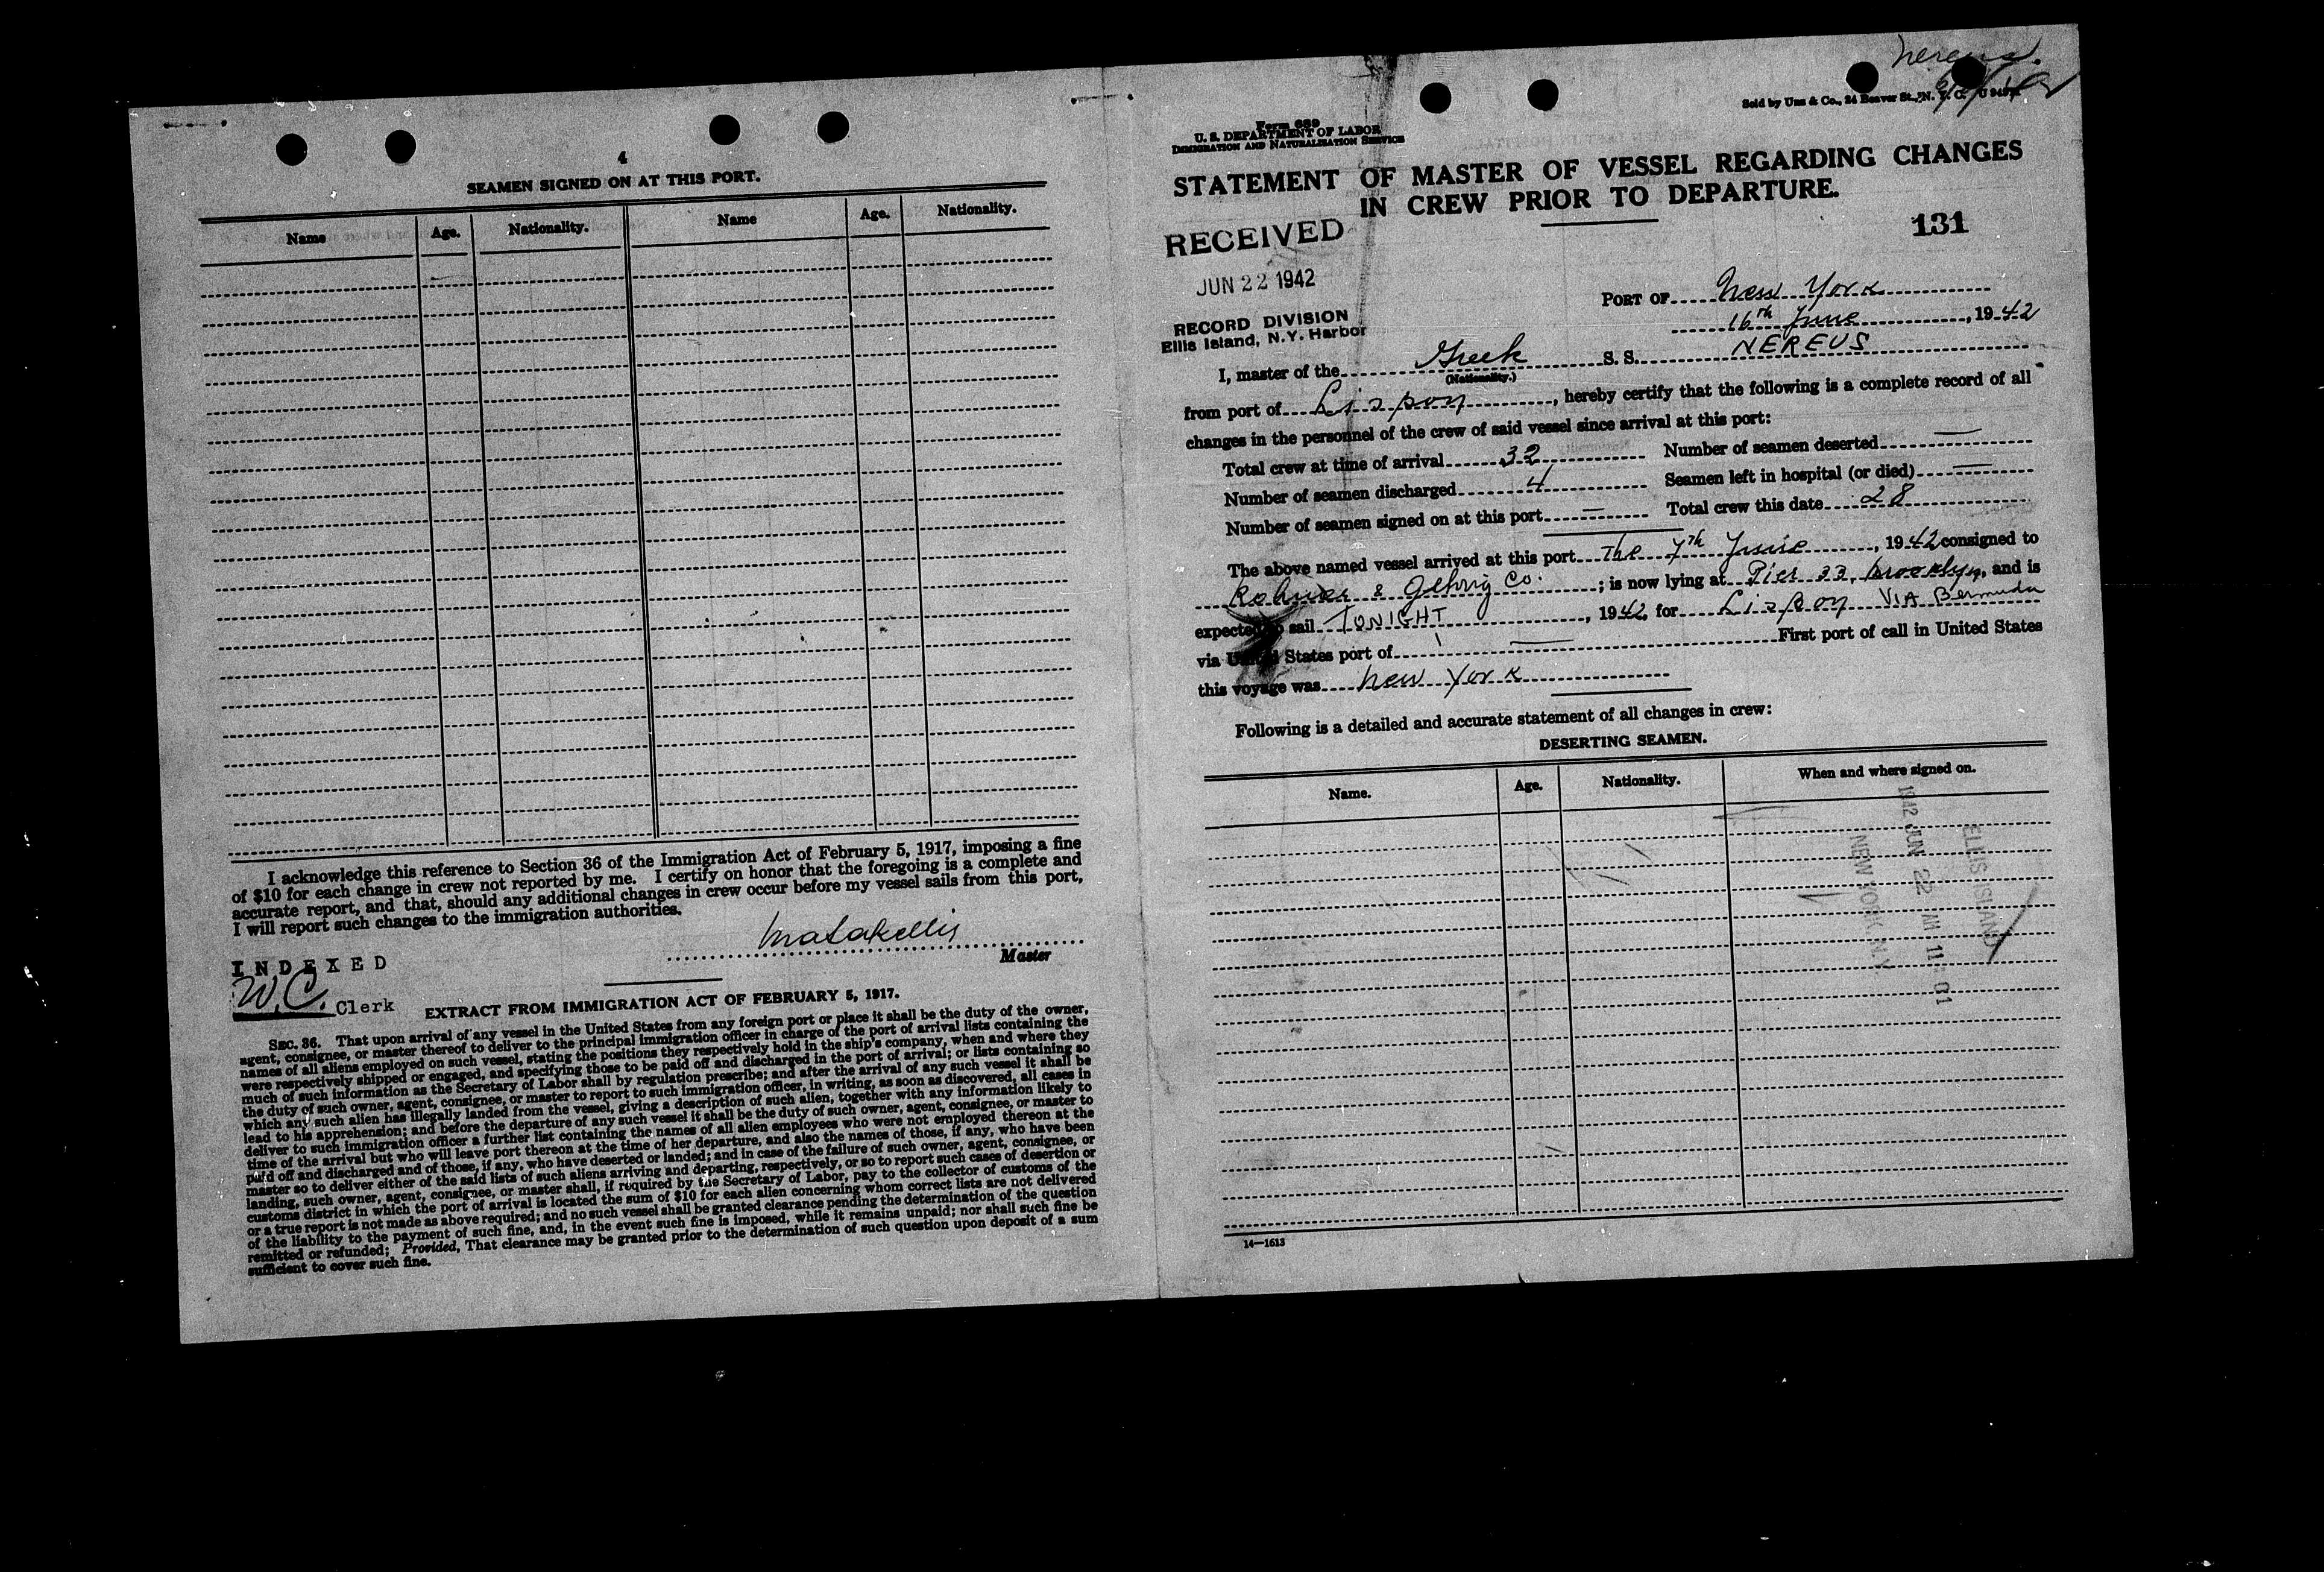 4
SEAMEN SIGNED ON AT THIS PORT.
Name Age. Nationality. Name Age. Nationality.
I acknowledge this reference to Section 36 of the Immigration Act of February 5, 1917, imposing a fine
of $10 for each change in crew not reported by me. I certify on honor that the foregoing is a complete and
accurate report, and that, should any additional changes in crew occur before my vessel sails from this port,
I will report such changes to the immigration authorities.
Master
INDEXED
W.C. Clerk
EXTRACT FROM IMMIGRATION ACT OF FEBRUARY 5, 1917.
SEC. 36. That upon arrival of any vessel in the United States from any foreign port or place it shall be the duty of the owner,
agent, consignee, or master thereof to deliver to the principal immigration officer in charge of the port of arrival lists containing the
names of all aliens employed on such vessel, stating the positions they respectively hold in the ship's company, when and where they
were respectively shipped or engaged, and specifying those to be paid off and discharged in the port of arrival; or lists containing so
much of such information as the Secretary of Labor shall by regulation prescribe; and after the arrival of any such vessel it shall be
the duty of such owner, agent, consignee, or master to report to such immigration officer, in writing, as soon as discovered, all cases in
which any such alien has illegally landed from the vessel, giving a description of such alien, together with any information likely to
lead to his apprehension; and before the departure of any such vessel it shall be the duty of such owner, agent, consignee, or master to
deliver to such immigration officer a further list containing the names of all alien employees who were not employed thereon at the
time of the arrival but who will leave port thereon at the time of her departure, and also the names of those, if any, who have been
paid off and discharged and of those, if any, who have deserted or landed; and in case of the failure of such owner, agent, consignee, or
master so to deliver either of the said lists of such aliens arriving and departing, respectively, or so to report such cases of desertion or
landing, such owner, agent, consignee, or master shall, if required by the Secretary of Labor, pay to the collector of customs of the
customs district in which the port of arrival is located the sum of $10 for each alien concerning whom correct lists are not delivered
or a true report is not made as above required; and no such vessel shall be granted clearance pending the determination of the question
of the liability to the payment of such fine, and, in the event such fine is imposed, while it remains unpaid; nor shall such fine be
remitted or refunded; Provided, That clearance may be granted prior to the determination of such question upon deposit of a sum
sufficient to cover such fine.
Sold by Unz & Co., 24 Beaver St., N. Y. C.
Form 689
U. S. DEPARTMENT OF LABOR
IMMIGRATION AND NATURALIZATION SERVICE
STATEMENT OF MASTER OF VESSEL REGARDING CHANGES
IN CREW PRIOR TO DEPARTURE.
131
RECEIVED
JUN 22 1942
RECORD DIVISION
Ellis Island, N.Y. Harbor
PORT OF New York
16th June, 1942
I, master of the Greek S. S. NEREUS
(Nationality.)
from port of Lisbon, hereby certify that the following is a complete record of all
changes in the personnel of the crew of said vessel since arrival at this port:
Total crew at time of arrival 32 Number of seamen deserted —
Number of seamen discharged 4 Seamen left in hospital (or died) —
Number of seamen signed on at this port — Total crew this date 28
The above named vessel arrived at this port The 7th June, 1942 consigned to
& Gehrig Co.; is now lying at Pier 33, Brooklyn, and is
expected to sail TONIGHT, 1942, for Lisbon VIA Bermuda
via United States port of — First port of call in United States
this voyage was New York
Following is a detailed and accurate statement of all changes in crew:
DESERTING SEAMEN.
Name. Age. Nationality. When and where signed on.
ELLIS ISLAND
1942 JUN 22 AM 11 01
NEW YORK, N.Y.
14—1613